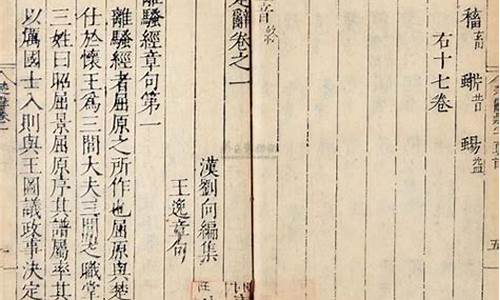 稸畜 昔 蜴益
右十七卷
音終
楚辭卷之一
漢劉向編集
王逸章句
離騷經章句第一
離騷經者屈原之所作也屈原與楚
仕於懷王爲三閭大夫三閭之職掌
三姓曰昭屈景屈原序其譜屬率其
以厲國士入則與王圖議政事決定